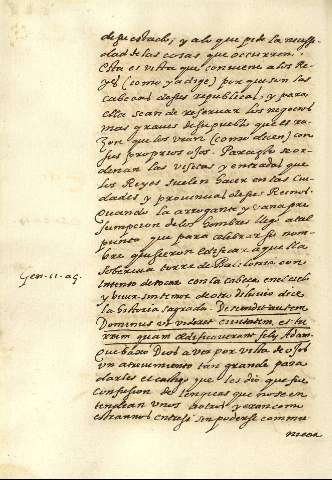 de su estado; y a lo que pide la necessi
dad de las cosas que occurren.
esta es vista que conviene a los Re
yes (como ya dige) por que son las
cabeças de sus republicas, y para
ella se an de reservar los negocios
mas graves de su pueblo que es ra
zon que los vean (como dicen) con
sus proprios ojos. Para esto se or
denan las visitas y entradas que
los Reyes suelen hacer en las Ciu
dades y provincias de sus Reinos.
Quando la arrogante y vana pre
sumpcion de los hombres llegó a tal
punto que para celebrar su nom
bre quisieron edificar aquella
soberuia torre de Babilonia con
Gen. 11.
intento de tocar con la cabeca en el cielo
y vivir sin temor de otro diluvio dice
la historia sagrada. Descendit autem
Dominus ut videret civitatem, et tu
rram quam aedificaverant filij Adam.
Que baxó Dios a ver por vista de ojos
un atrevimento tan grande para
darles el castigo que les dio que fue
confusion de lenguas que no se en
tendian unos a otros y eran como
estraños entre si sin poderse commu